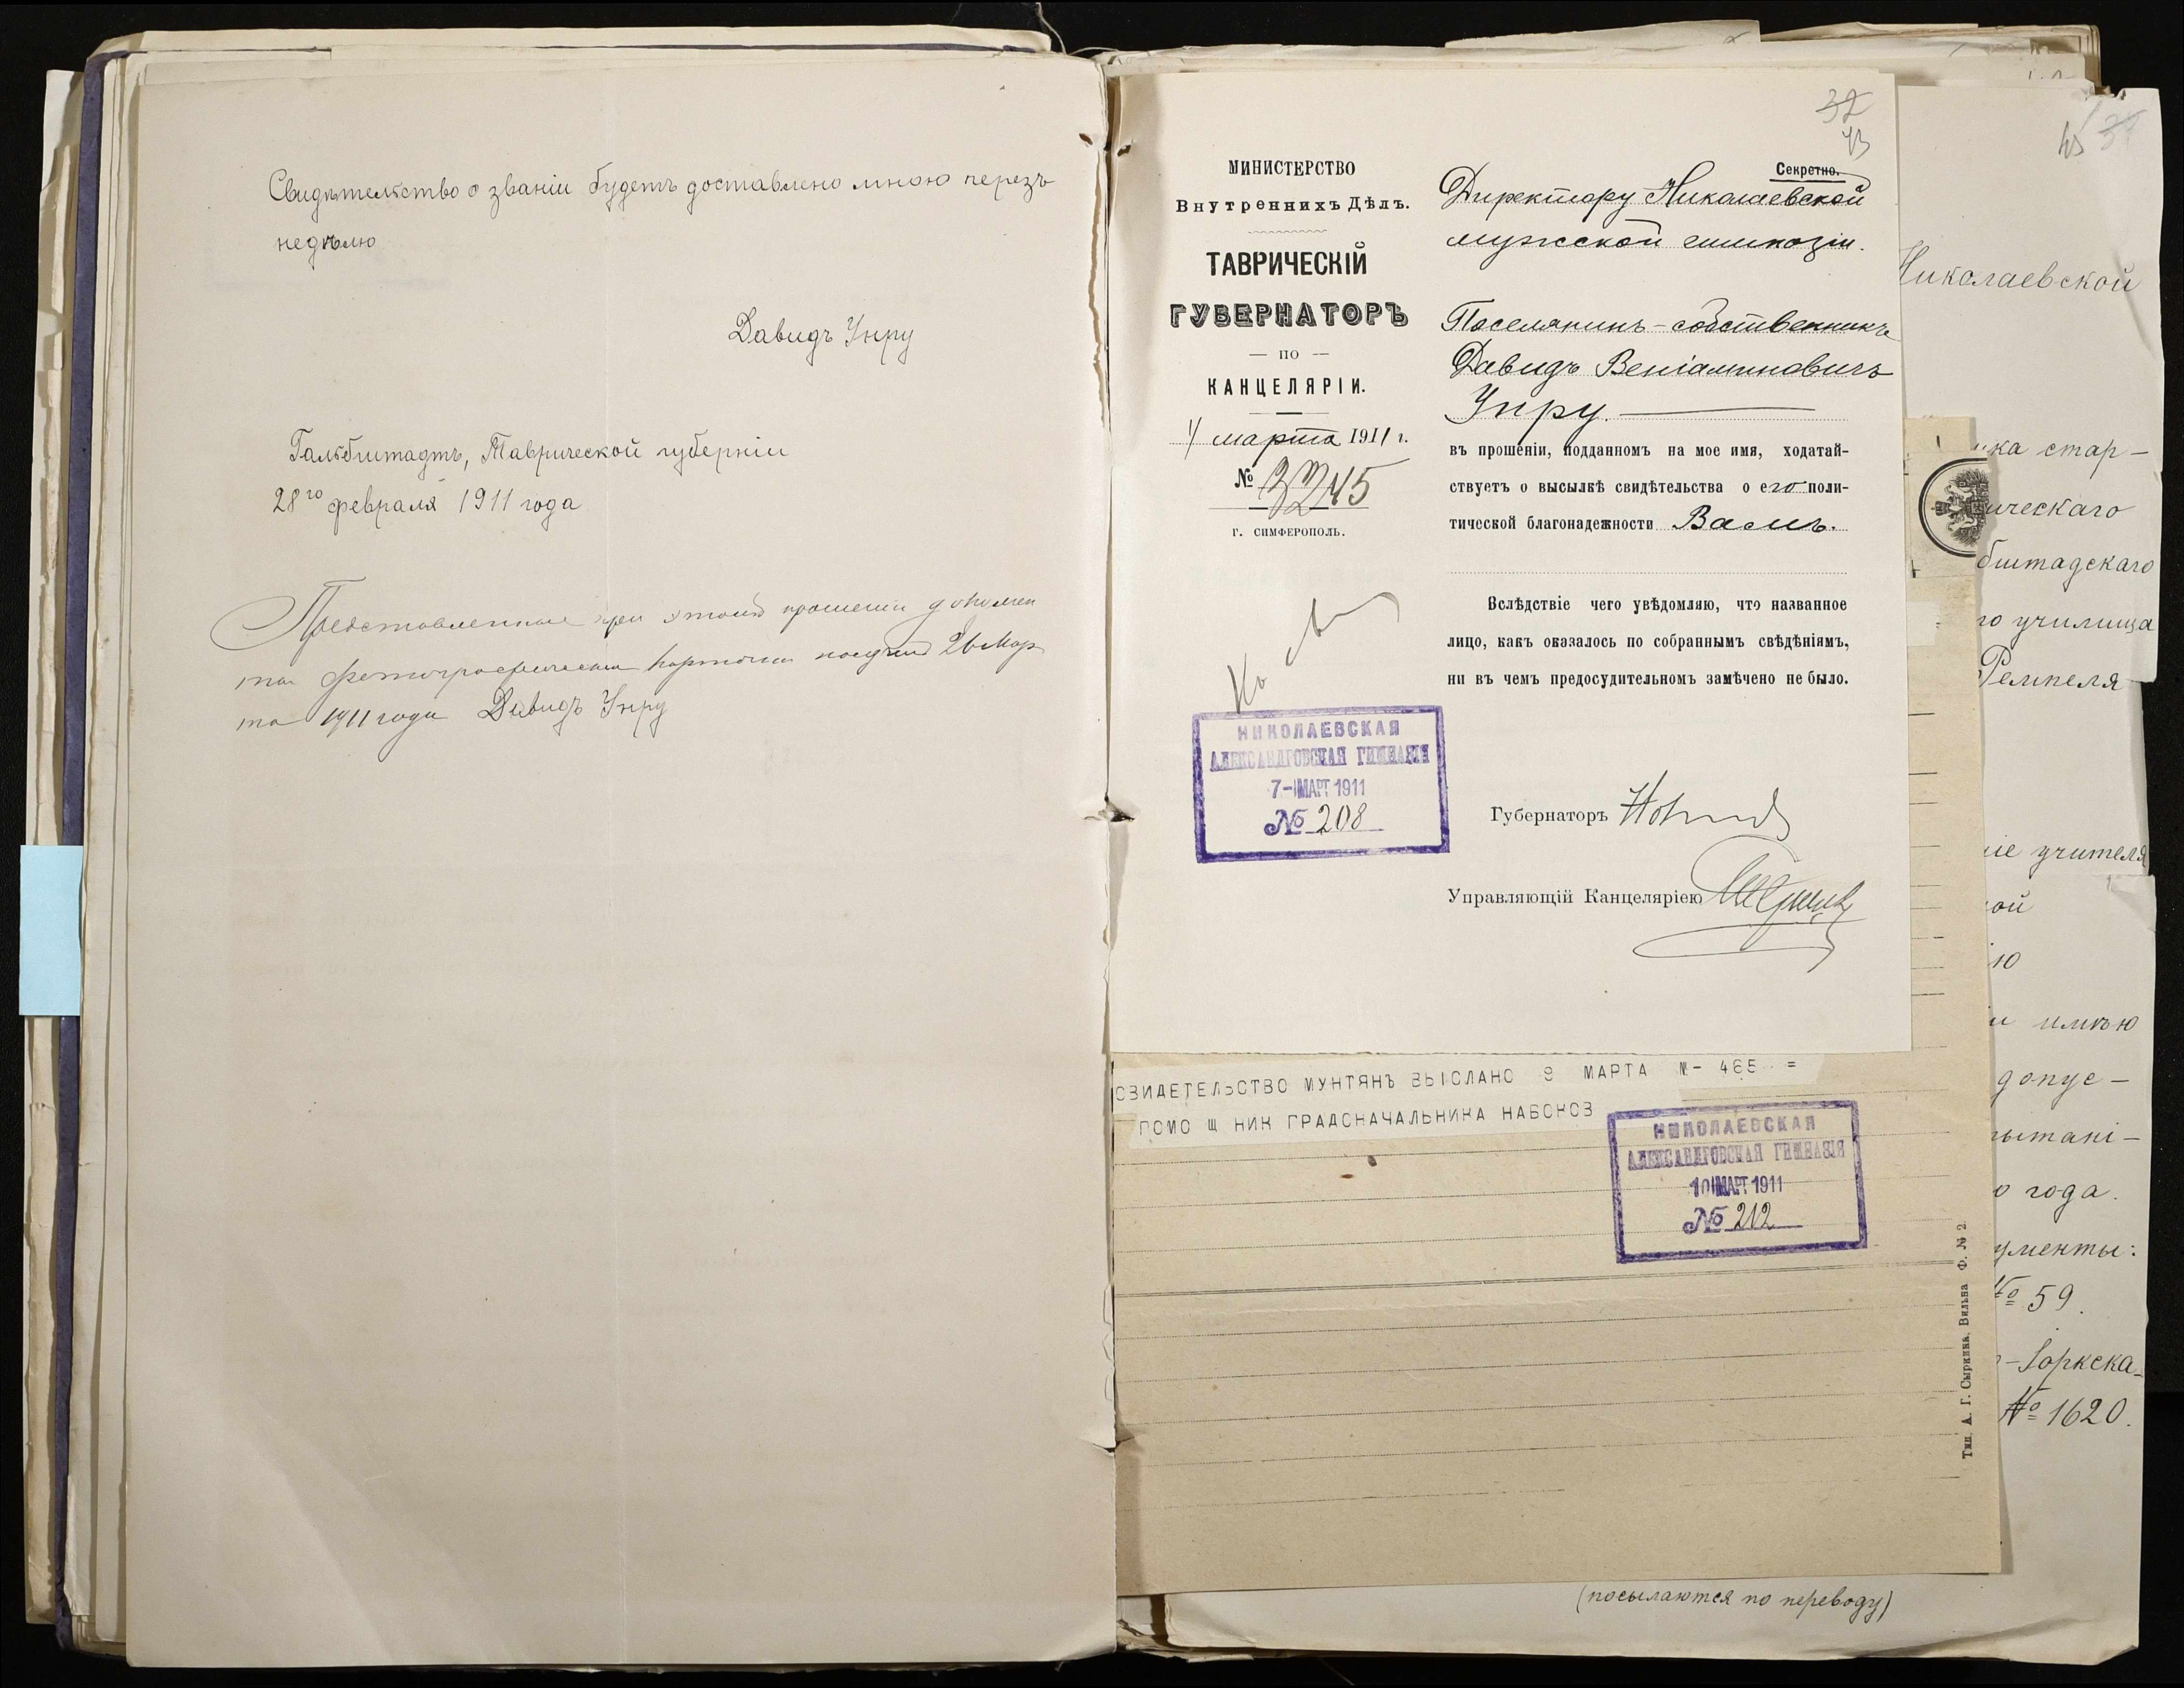 Свидѣтельство о званіи будетъ доставлено мною черезъ
недѣлю
Давидъ Унру
Гальбштадтъ, Таврической губерніи
28го февраля 1911 года
Представленные при этомъ прошеніи докумен
та фотографическия карточки получилъ 26 Мар
та 1911 года Давидъ Унру
32
43
МИНИСТЕРСТВО
Внутреннихъ Дѣлъ.
ТАВРИЧЕСКІЙ
ГУБЕРНАТОРЪ
— ПО —
КАНЦЕЛЯРІИ.
4 марта 1911 г.
№ 3245
г. СИМФЕРОПОЛЬ.
Секретно.
Директору Николаевской
мужской гимназіи.
Поселянинъ-собственникъ
Давидъ Веніаминовичъ
Унру.
въ прошеніи, поданномъ на мое имя, ходатай-
ствуетъ о высылкѣ свидѣтельства о его поли-
тической благонадежности Вамъ.
Вслѣдствіе чего увѣдомляю, что названное
лицо, какъ оказалось по собраннымъ свѣдѣніямъ,
ни въ чемъ предосудительномъ замѣчено не было.
НИКОЛАЕВСКАЯ
АЛЕКСАНДРОВСКАЯ ГИМНАЗІЯ
7-МАРТ 1911
№ 208
Губернаторъ
Управляющій Канцеляріею
СВИДЕТЕЛЬСТВО МУНТЯНЪ ВЫСЛАНО 9 МАРТА N- 465 =
ПОМОЩНИК ГРАДОНАЧАЛЬНИКА НАБОКОВ
НИКОЛАЕВСКАЯ
АЛЕКСАНДРОВСКАЯ ГИМНАЗІЯ
10 МАРТ 1911
№ 212
Тип. А. Г. Сыркина, Вильна Ф. № 2.
45
Николаевской
ка стар-
ическаго
бштадскаго
го училища
Ремпеля
ие учителя
ой
ю
и имѣю
допус-
ытані-
о года.
ументы:
№ 59.
-Горкска-
№ 1620.
(посылаются по переводу)